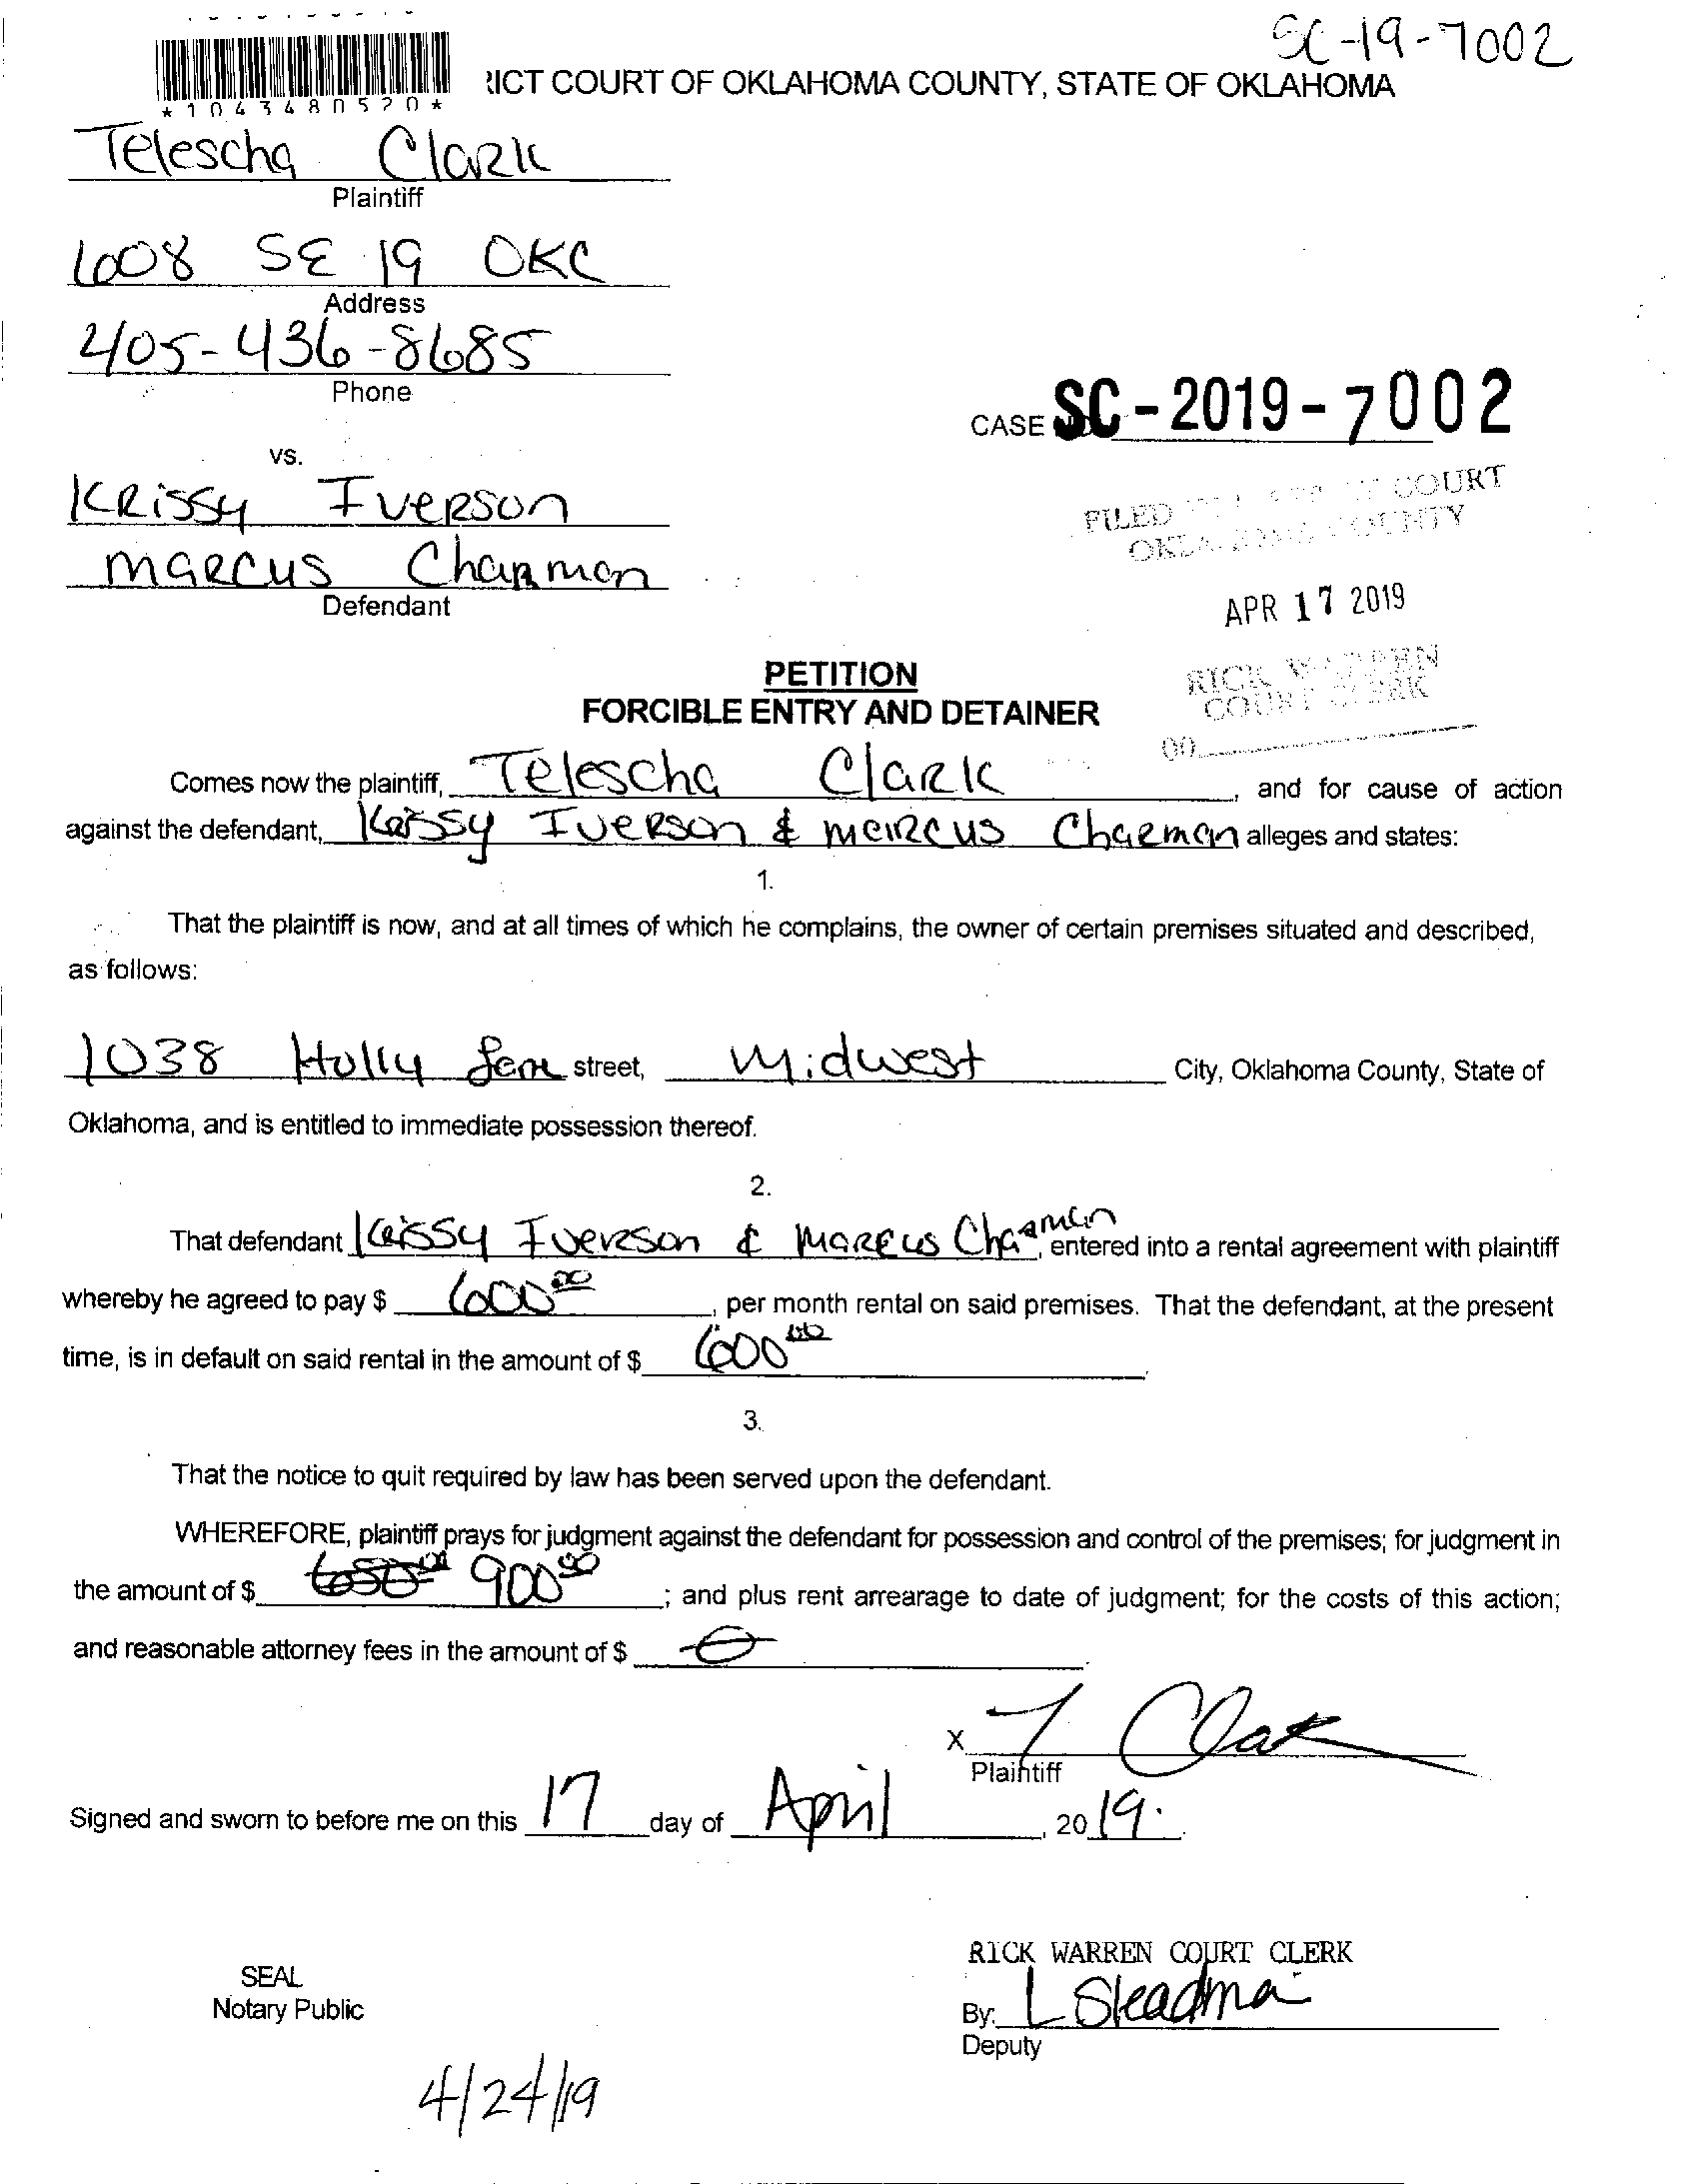 SC-19-7002
*1043480520*
RICT COURT OF OKLAHOMA COUNTY, STATE OF OKLAHOMA
Telescha Clark
Plaintiff
608 SE 19 OKC
Address
405-436-8685
Phone
CASE SC-2019-7002
vs.
Krissy Iverson
FILED COURT
OKLAHOMA COUNTY
Marcus Chapman
Defendant
APR 17 2019
RICK WARREN
COURT CLERK
PETITION
FORCIBLE ENTRY AND DETAINER
00
Comes now the plaintiff, Telescha Clark, and for cause of action
against the defendant, Krissy Iverson & Marcus Charman alleges and states:
1.
That the plaintiff is now, and at all times of which he complains, the owner of certain premises situated and described,
as follows:
1038 Holly Lane street, Midwest City, Oklahoma County, State of
Oklahoma, and is entitled to immediate possession thereof.
2.
That defendant Krissy Iverson & Marcus, entered into a rental agreement with plaintiff
whereby he agreed to pay $ 600.00, per month rental on said premises. That the defendant, at the present
time, is in default on said rental in the amount of $ 600.00.
3.
That the notice to quit required by law has been served upon the defendant.
WHEREFORE, plaintiff prays for judgment against the defendant for possession and control of the premises; for judgment in
the amount of $ 650.00 900.00; and plus rent arrearage to date of judgment; for the costs of this action;
and reasonable attorney fees in the amount of $ 0.
X T Clark
Plaintiff
Signed and sworn to before me on this 17 day of April, 2019.
RICK WARREN COURT CLERK
SEAL
Notary Public
By: L Steadma
Deputy
4/24/19